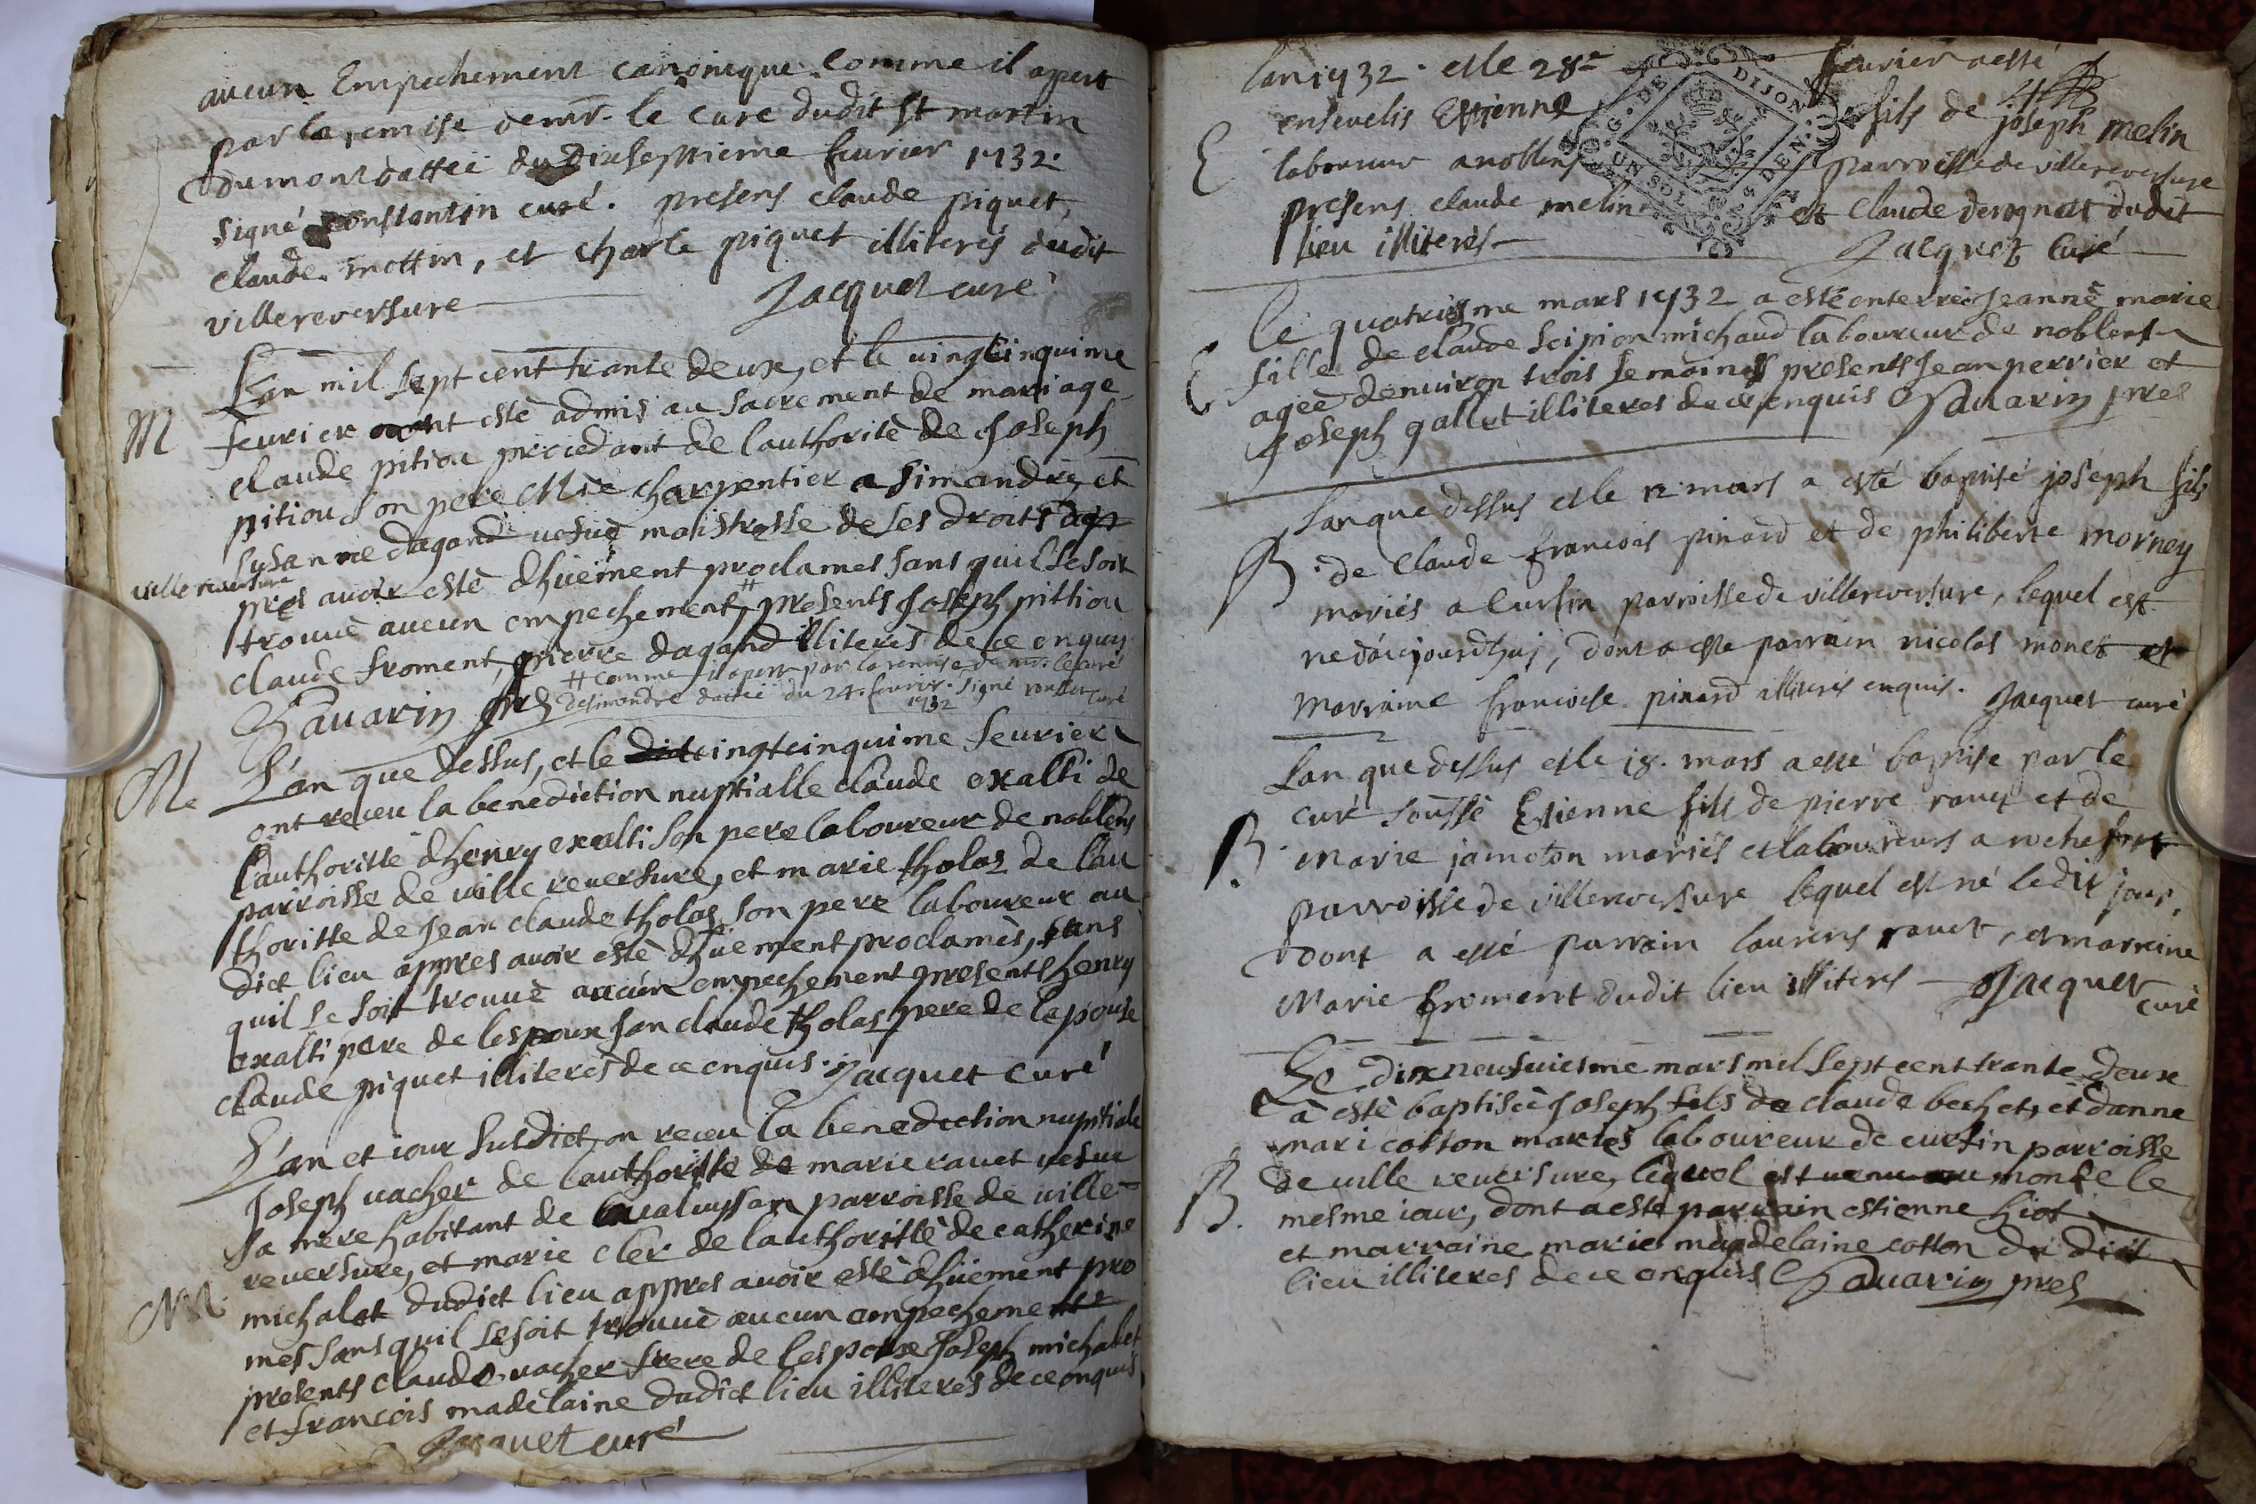 aucun Empechement canonique. Comme il apert
par la remise de mr. le curé dudit st martin
dumont dattée du Dixseptieme feurier 1732.
signé constantin curé. presens claude piquet,
claude mottin, et charle piquet illiterés dudit
villereversure Jacquet curé
M
Lan mil sept cent trante deux, et le uingtcinquime
feurier ont esté admis au sacrement de mariage
claude pitiou procedant de lauthoritè de Joseph
pitiou son pere Me charpentier a simandre, et
susanne dagand uefue maistresse de ses droits ap
ville reuersure
pres auoir estè dhuëment proclames sans quil se soit
trouuè aucun empechement, # presents Joseph pittiou
claude froment, pierre dagand illiterès de ce enquis
# comme il apert par la remise de mr. le curé
desimandre dattée du 24. feurier. signé curé
1732
Sauarin pres
M
L'an que dessus, et le uingtcinquime feurier
ont receu la benediction nuptialle claude exalti de
lauthoritté dhenry exalti son pere laboureur de noblens
parroisse de uille reuersure, et marie tholas de lau
thoritte de Jean claude tholas son pere laboureur au
dict lieu appres auoir estè dhüement proclamès, sans
quil se soit trouuè aucun empechement presents henry
exalti pere de lespoux Jan claude tholas pere de lepouse
claude piquet illiterès de ce enquis. Jacquet curé
L'an et iour susdict, on receu la benediction nuptiale
Joseph uacher de lauthoritte de marie rauet uefue
sa mere habitant de parroisse de uille
M
reuersure, et marie cler de lauthorittè de catherine
michalet dudict lieu appres auoir estè dhüement pro
mes sans quil se soit trouuè aucun empechement
presents claude uacher frere de lespoux Joseph michalet
et francois madelaine dudict lieu illiterès de ce enquis
Jacquet curé
lan 1732. et le 28e feurier a esté
enseuelis Estienne fils de joseph melin
E
laboureur a noblens parroisse de villereversure
presens claude melin et claude dudit
lieu illiterés Jacquet curé
G. DE DIJON
UN SOL
DEN.
Le quatrisme mars 1732 a estè enterrée Jeanne marie
E
fille de claude scipion michaud laboureur de noblens
agee denuiron trois semaines presents Jean perrier et
Joseph gallet illiteres de ce enquis Sauarin pres
Lan que dessus et le 12 mars a esté baptisé joseph fils
B
de Claude francois pinard et de philiberte morney
mariés a Cursin parroisse de villereversure, lequel est
né dáujourdhuj, dont a esté parrain nicolas monet et
marraine francoise pinard illiterés enquis. Jacquet curé
Lan que dessus et le 18. mars a esté baptise par le
curé soussé Etienne fils de pierre rauet et de
B
marie jamoton mariés et laboureurs a rochefort
parroisse de villereversure lequel est né ledit jour,
dont a esté parrain laurens rauet, et marraine
Marie froment dudit lieu illiterés Jacquet
curé
Le dixneufuiesme mars mil sept cent trante deux
à estè baptisè Joseph fils de claude bechet, et danne
mari cotton mariès laboureur de cursin parroisse
de uille reuersure, lequel est uenu au monde le
B
mesme iour, dont a este parrain estienne hiot
et marraine marie magdelaine cotton du dict
lieu illiteres de ce enquis Sauarin pres